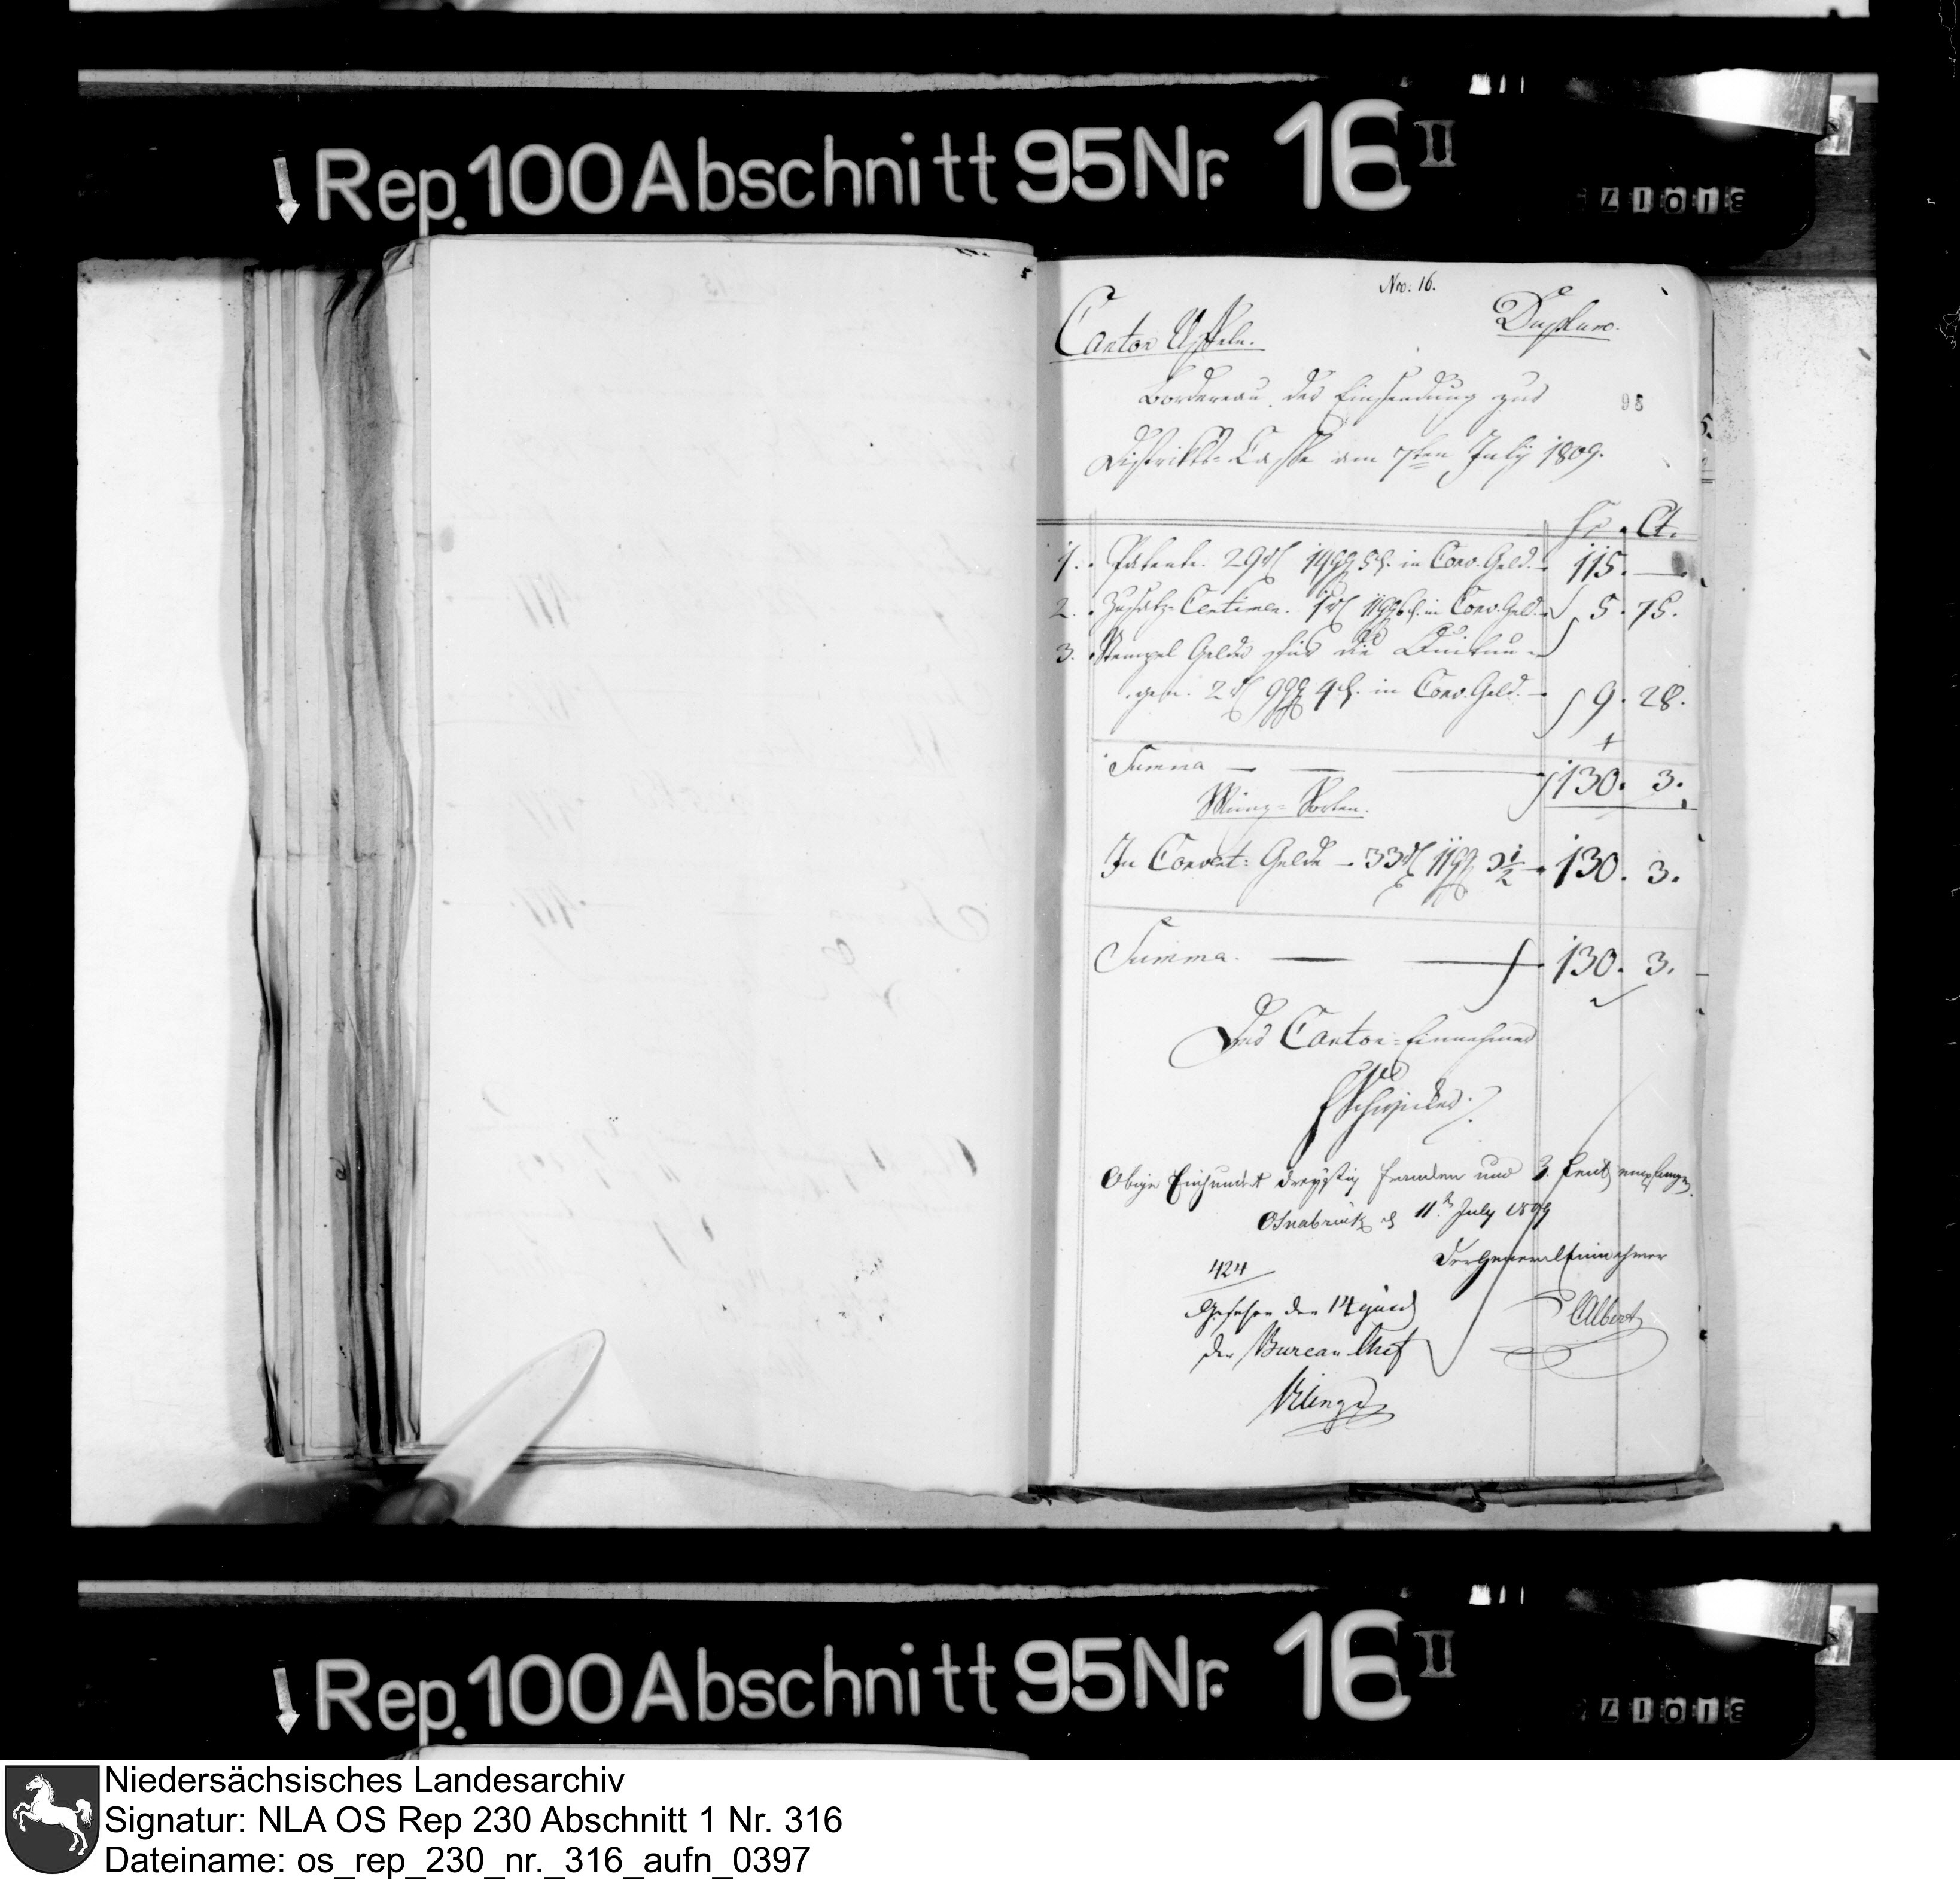 Rep. 100 Abschnitt 95 Nr. 16 II
Nro: 16.
Canton Uffeln. Duplum.
Bordereau der Einsendung zur
98
Distrikts-Casse am 7ten July 1809.
Fr. Ct.
1. Patente. 29 rl 14 gg 5 d. in Conv. Geld. 115. —
2. Zusatz-Centimen. 1 rl 11 gg 6 d. in Conv. Geld. 5. 75.
3. Stempel Gelder für die Quitun-
gen. 2 rl 9 gg 4 d. in Conv. Geld. 9. 28.
Summa — — — 130. 3.
Münz-Sorten.
In Convent: Gelde — 33 rl 11 gg 3 1/2 130. 3.
Summa. — — 130. 3.
Der Canton-Einnehmer
Obige Einhundert dreyßig Franken und 3. Cent empfangen.
Osnabrück d 11t July 1809
Der General Einnehmer
424
Albert
Gesehen den 14
der Bureau Chef
Rep. 100 Abschnitt 95 Nr. 16 II
Niedersächsisches Landesarchiv
Signatur: NLA OS Rep 230 Abschnitt 1 Nr. 316
Dateiname: os_rep_230_nr._316_aufn_0397